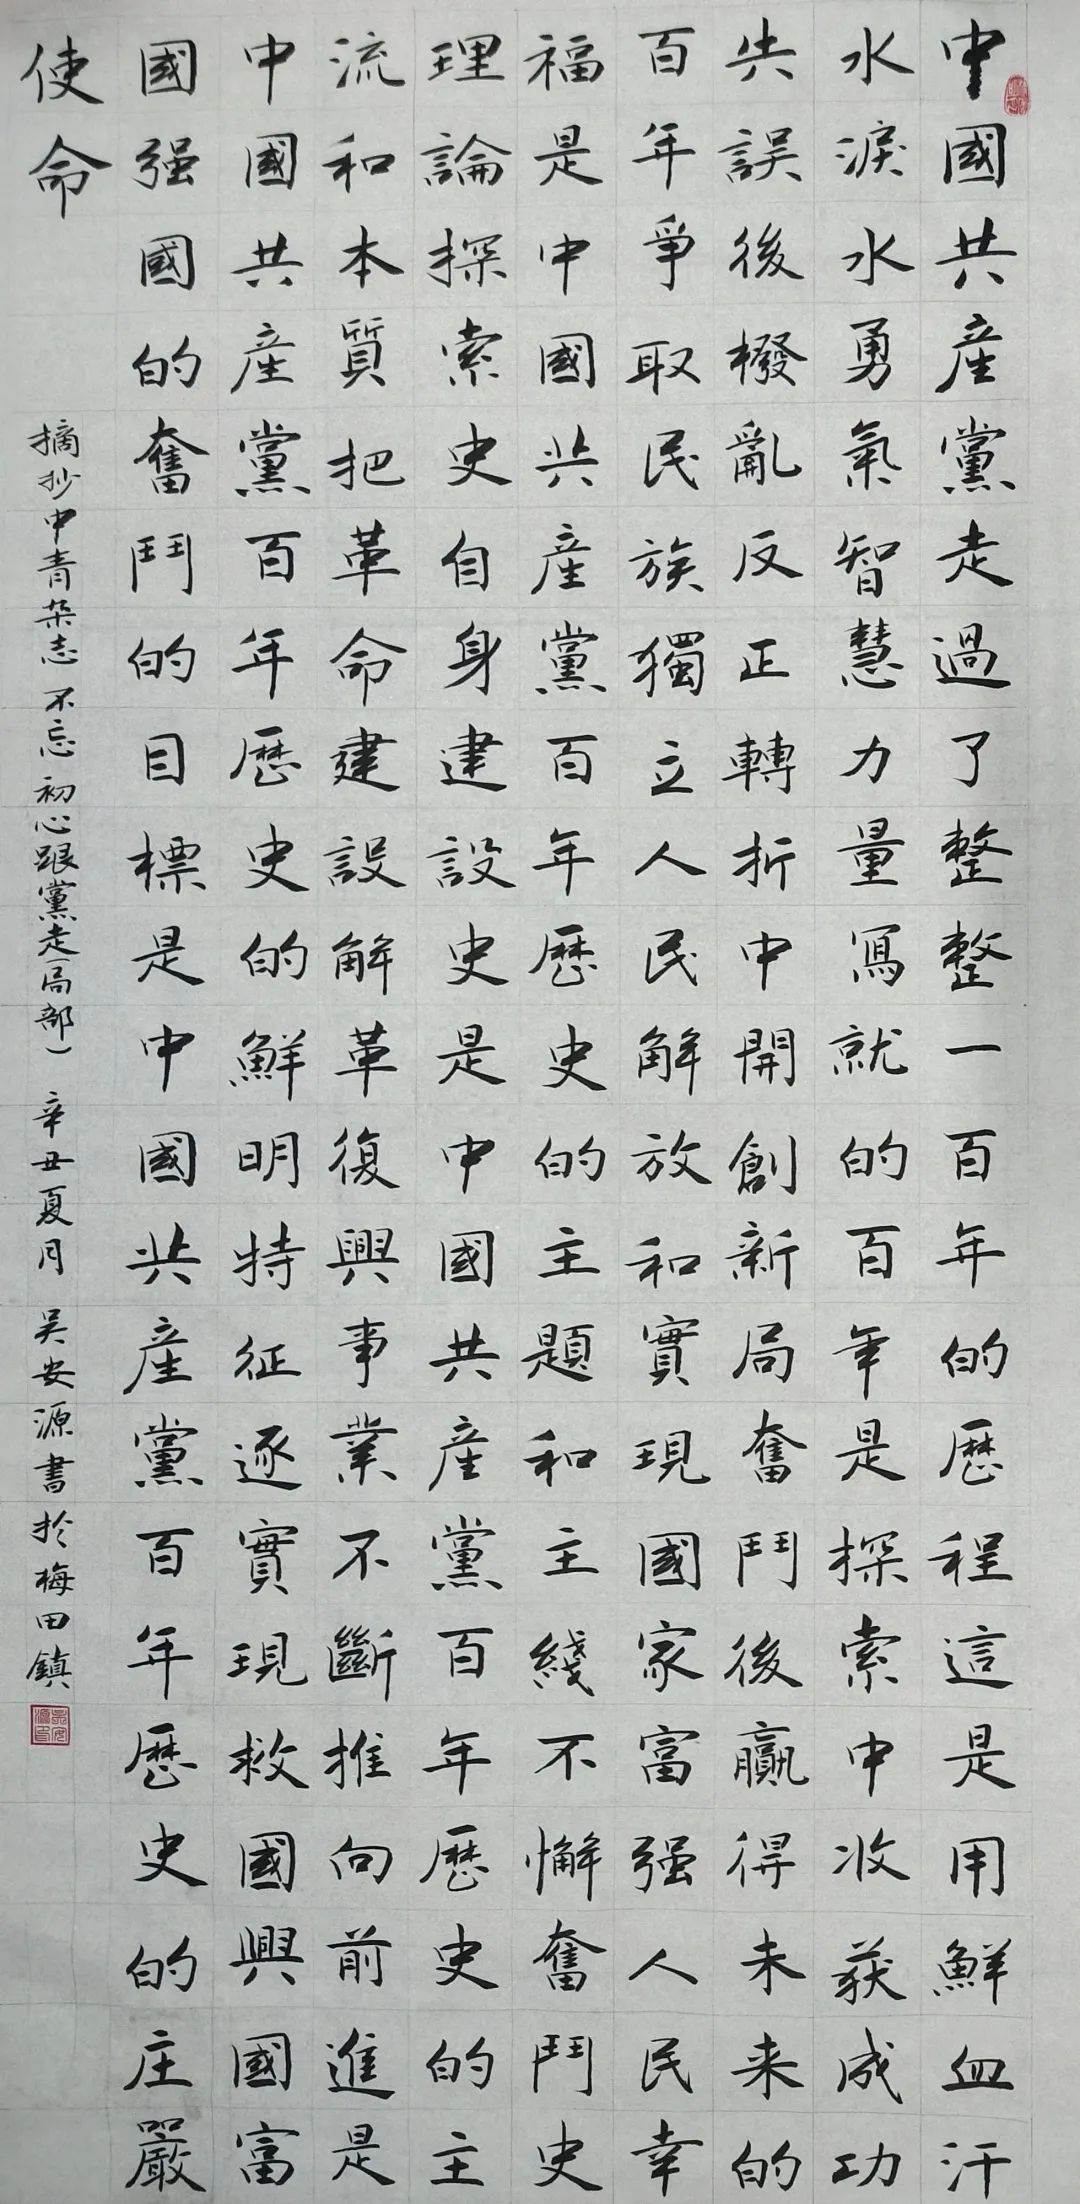 中國共産黨走過了整整一百年的歷程這是用鮮血汗
水淚水勇氣智慧力量寫就的百年是探索中收获成功
失誤後撥亂反正轉折中開創新局奮鬥後贏得未来的
百年爭取民族獨立人民解放和實現國家富强人民幸
福是中國共産黨百年歷史的主題和主綫不懈奮鬥史
理論探索史自身建設史是中國共産黨百年歷史的主
流和本質把革命建設解革復興事業不斷推向前進是
中國共産黨百年歷史的鮮明特征逐實現救國興國富
國强國的奮鬥的目標是中國共産黨百年歷史的庄嚴
使命
摘抄中青杂志不忘初心跟黨走(局部) 辛丑夏月 吴安源書於梅田鎮